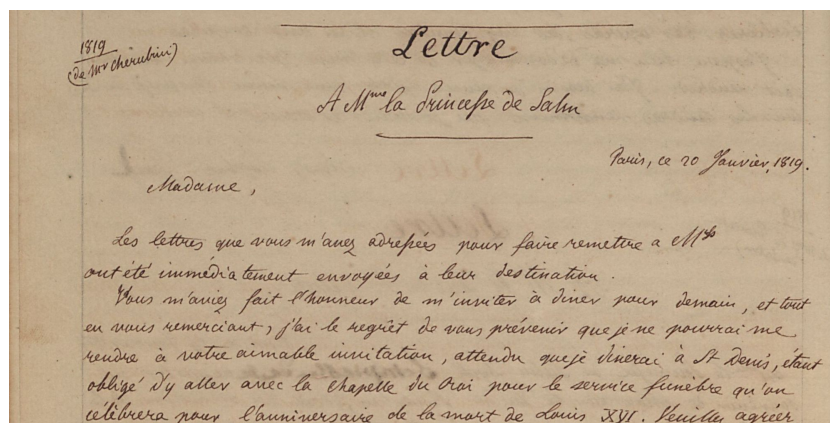 1819
(de Mr Cherubini)
Lettre
A Mme la Princesse de Salm
Paris, ce 20 Janvier, 1819.
Madame,
Les lettres que vous m'avez adressées pour faire remettre a Mrs
ont été immédiatement envoyées à leur destination.
Vous m'aviez fait l'honneur de m'inviter à diner pour demain, et tout
en vous remerciant, j'ai le regrêt de vous prévenir que je ne pourrai me
rendre à votre aimable invitation, attendu que je dinerai à St Denis, étant
obligé d'y aller avec la chapelle du Roi pour le service funèbre qu'on
célèbrera pour l'anniversaire de la mort de Louis XVI. Veuillez agréer